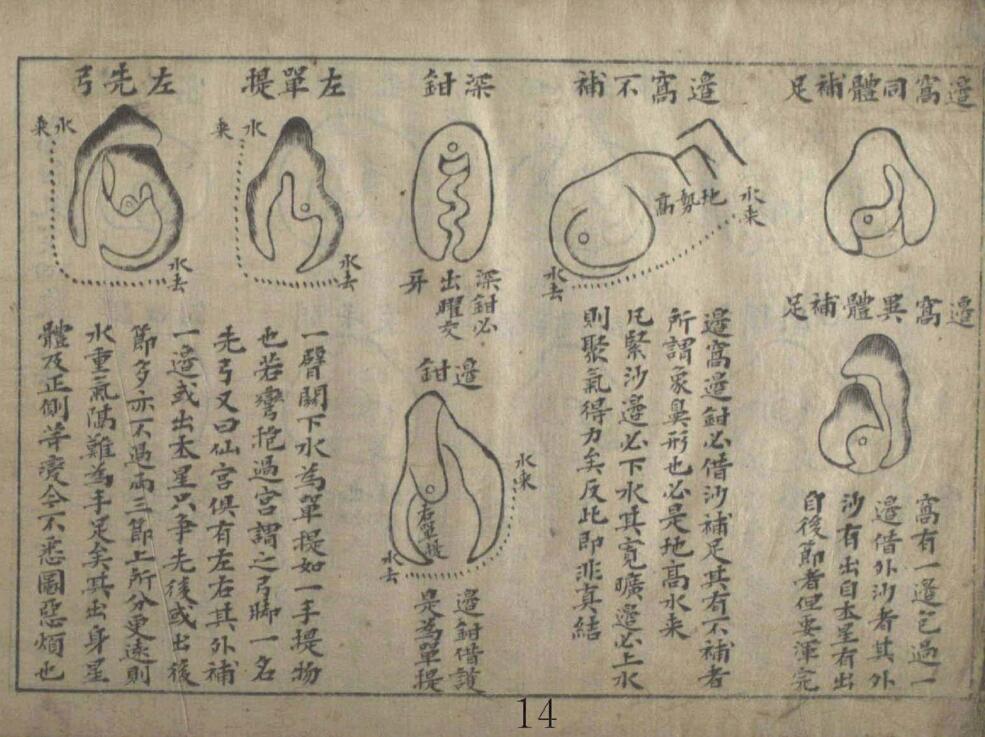 邉窩同體補足
邉窩異體補足
窩有一邉包過一
邉借外沙者其外
沙有出自本星有出
自後節者但要渾完
邉窩不補
地勢高
水来
水去
邉窩邉鉗必借沙補足其有不補者
所謂象鼻形也必是地高水来
凡緊沙邉必下水其寛曠邉必上水
則聚氣得力矣反此即非真結
深鉗
深鉗必
出曜交
牙
邉鉗
水来
右單提
水去
邉鉗借護
是為單提
左單提
水来
水去
左先弓
水来
水去
一臂關下水為單提如一手提物
也若彎抱過宫謂之弓脚一名
先弓又曰仙宫俱有左右其外補
一邉或出本星只争先後或出後
節多亦不過兩三節上所分更遠則
水重氣隔難為手足矣其出身星
體及正側等変今不悉圖惡煩也
14